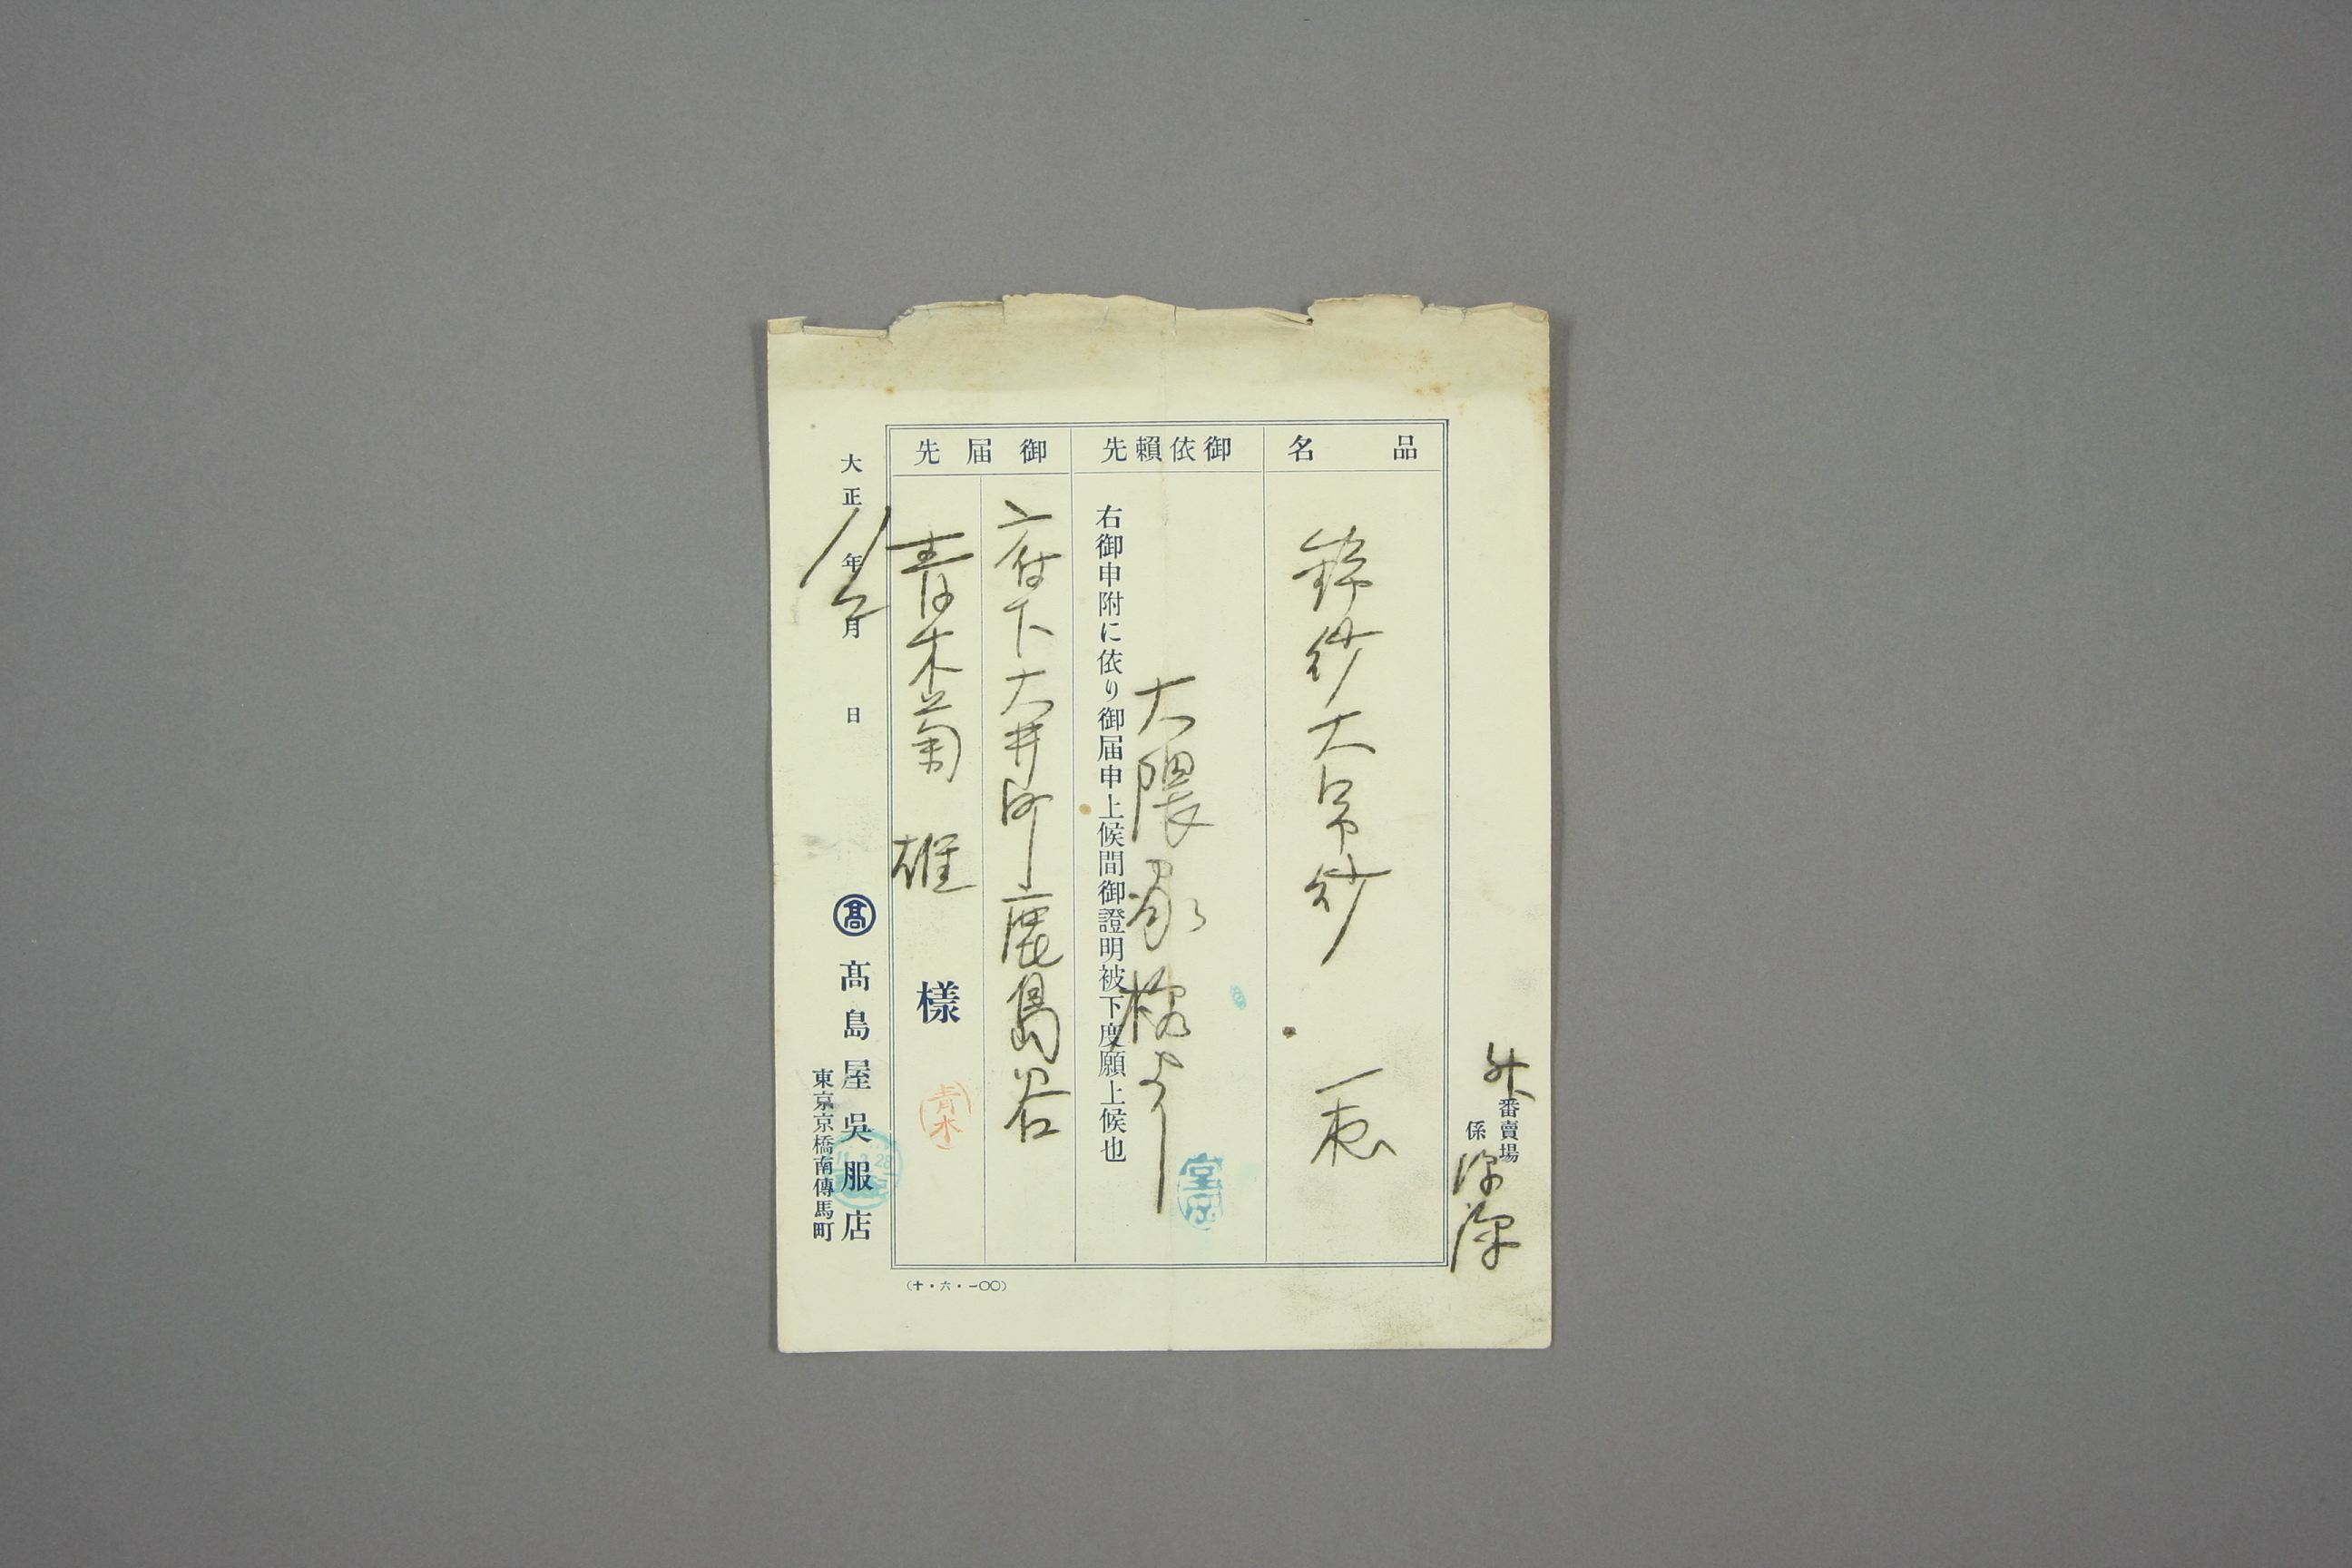 外番賣場
係
品名
錦紗大帛紗 一
御依賴先
大隈家様より
右御申附に依り御届申上候間御證明被下度願上候也
堂田
御届先
府下大井町鹿島谷
青木菊雄様
青木
大正11年2月 日
髙
髙島屋吳服店
東京京橋南傳馬町
(十・六・一〇〇)